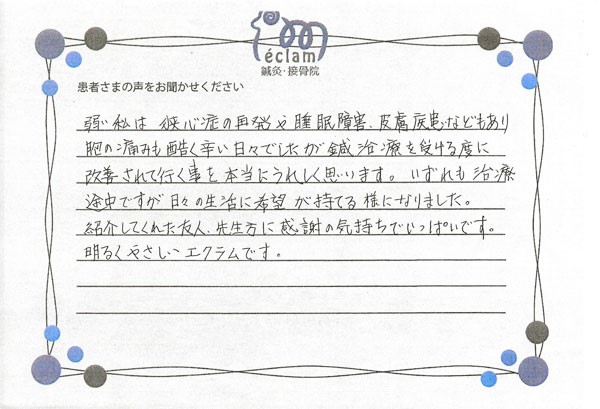 éclam
鍼灸・接骨院
患者さまの声をお聞かせください
弱い私は狭心症の再発や睡眠障害、皮膚疾患などもあり
胞の痛みも酷く辛い日々でしたが鍼治療を受ける度に
改善されて行く事を本当にうれしく思います。いずれも治療
途中ですが日々の生活に希望が持てる様になりました。
紹介してくれた友人、先生方に感謝の気持ちでいっぱいです。
明るくやさしいエクラムです。